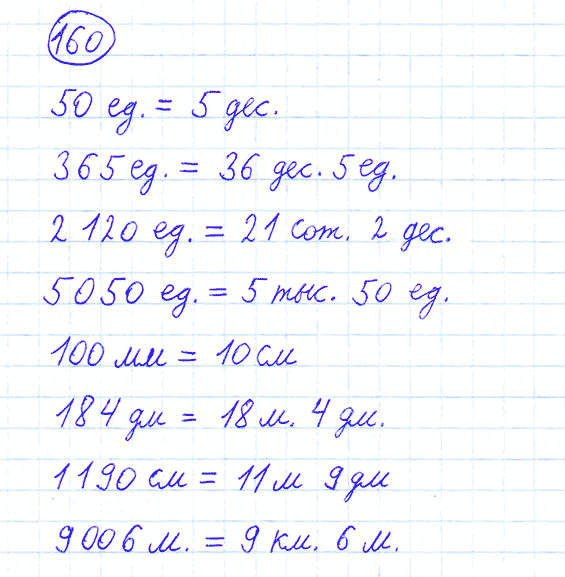 160
50 ед. = 5 дес.
365 ед. = 36 дес. 5 ед.
2 120 ед. = 21 сот. 2 дес.
5050 ед. = 5 тыс. 50 ед.
100 мм = 10 см
184 дм = 18 м. 4 дм.
1190 см = 11 м 9 дм
9006 м. = 9 км. 6 м.